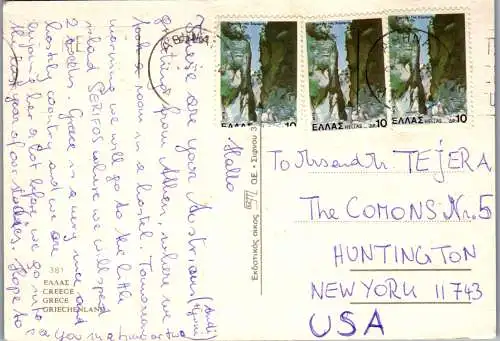 Hallo
There are your Austrians (Andi,
greeting from Athen, where we
took a room in a hostel. Tomorrow
morning we will go to the little
island SERIFOS where we will spend
2 weeks. Grece is a very nice and
country and we are
her a lot before we go into
the last year of our studies. Hope to
see you in a time or two
381
ΕΛΛΑΣ
GREECE
GRECE
GRIECHENLAND
Εκδοτικός οίκος Ο.Ε. - Σίφνου 3
ΕΛΛΑΣ HELLAS ΔΡ.10
ΕΛΛΑΣ HELLAS ΔΡ.10
ΕΛΛΑΣ HELLAS ΔΡ.10
To Mrs and Mr TEJERA
The COMONS Nr. 5
HUNTINGTON
NEW YORK 11743
USA